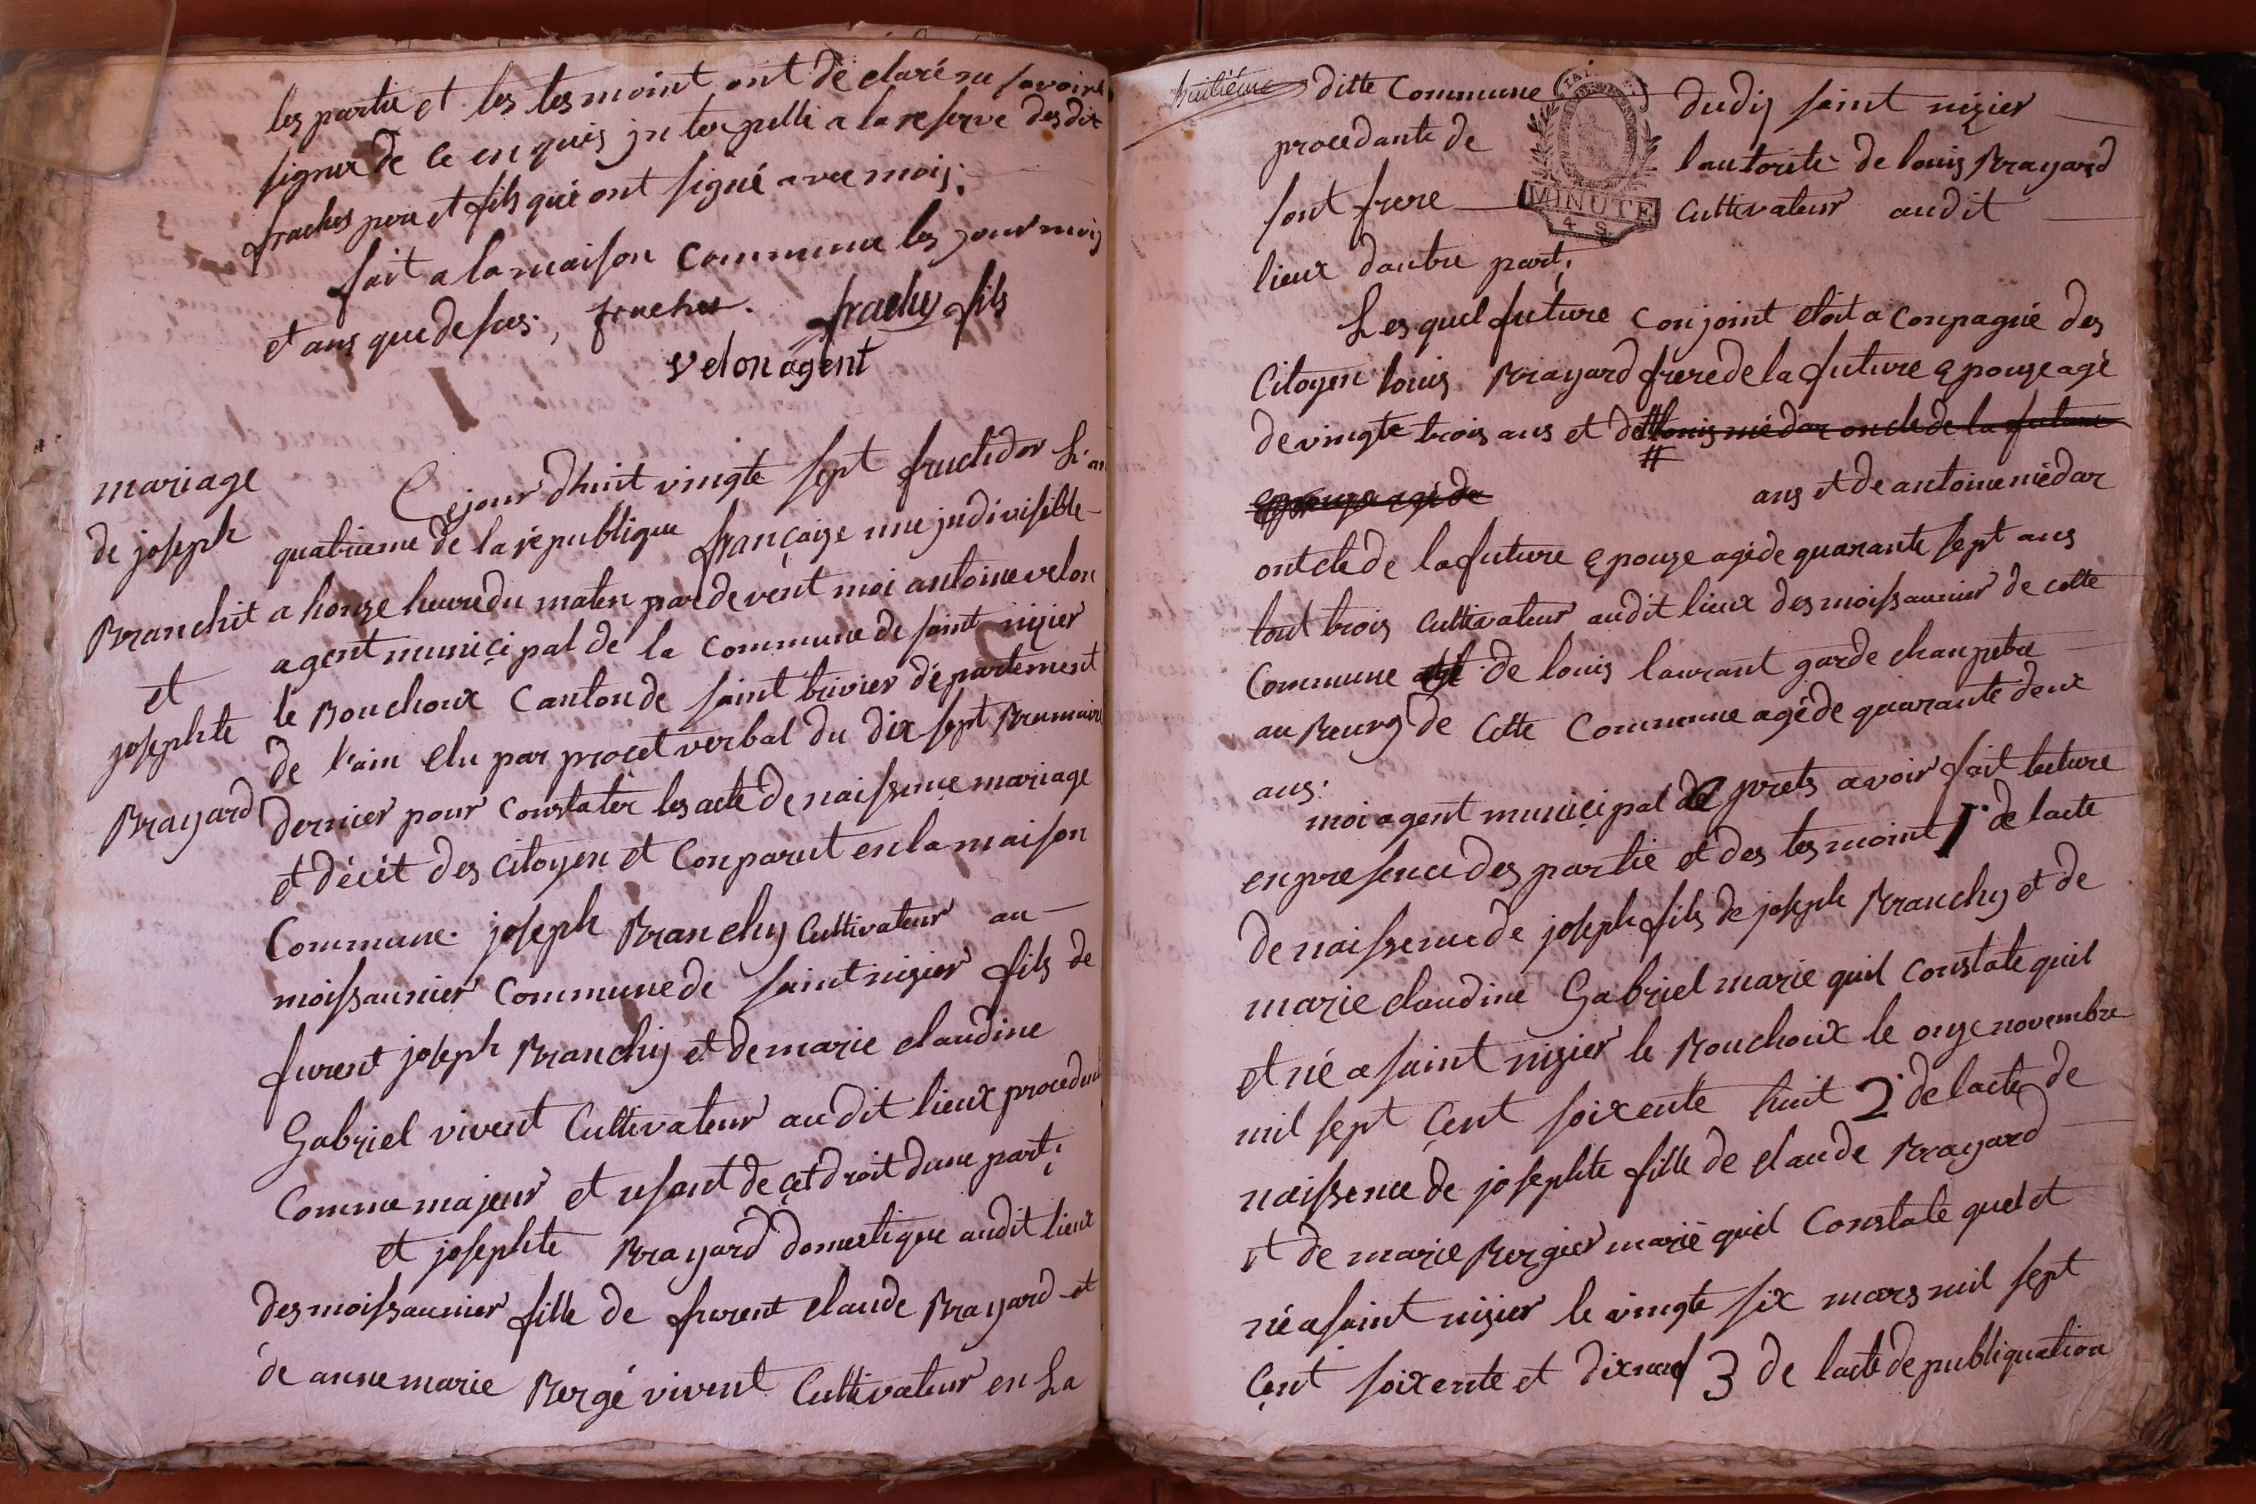 les partie et les tesmoint ont de claré ne savoire
signer de ce en quis jn terpellé a la reserve des dit
frachet pere et fils qui ont signé avec mois;
fait a la maison commune les jour mois
et ans que de sus;, frachet. frachet fils
velon agent
mariage
de joseph
Branchit
et
josephte
Brayard
Cejour dhuit vingte sept fructidor L'an
quatrieme de la république françaize une jndivisible
a honze heure du maten pardevent moi antoine velon
agent municipal de la commune de saint nizier
le Bouchoux canton de saint trivier département
de l'ain elu par procet verbal du dix sept Brumaire
dernier pour constater les acte de naissence mariage
et décit des citoyen et conparut en la maison
commune. joseph Branchy cultivateur au
moissaunier commune de saint nizier fils de
furent joseph Branchy et de marie claudine
Gabriel vivent cultivateur audit lieux procedent
comme majeur et usant de cet droit dune part;
et josephte Brayard domestique audit lieux
des moissaunier fille de furent claude Brayard et
de anne marie Bergé vivent cultivateur en La
huitiéme
ditte commune dudis saint nizier
procedante de lautorité de louis Brayard
sont frere cultivateur audit
MINUTE
4 S
lieux dautre part;
Les quel future conjoint etoit aconpagné des
citoyen louis Brayard frere de la future epouze agé
de vingte trois ans et de louis niédar oncle de la future
#
epouze agé de ans et de antoine niédar
ontcle de la future epouze agé de quarante sept ans
tout trois cultivateur audit lieux des moissaunier de cette
commune et de louis laurant garde chanpetre
au Bourg de cette commune agé de quarante deux
ans.
moi agent municipal aprets avoir fait lecture
en presence des partie et des tesmoint 1. de lacte
de naissence de joseph fils de joseph Branchy et de
marie claudine Gabriel marie quil constate quil
et né a saint nizier le Bouchoux le onze novembre
mil sept cent soixente huit 2. de lacte de
naissence de josephte fille de claude Brayard
et de marie Bergier marié quil constate quel et
né a saint nizier le vingte six mars mil sept
cent soixente et dixneuf 3 de lacte de publiquation